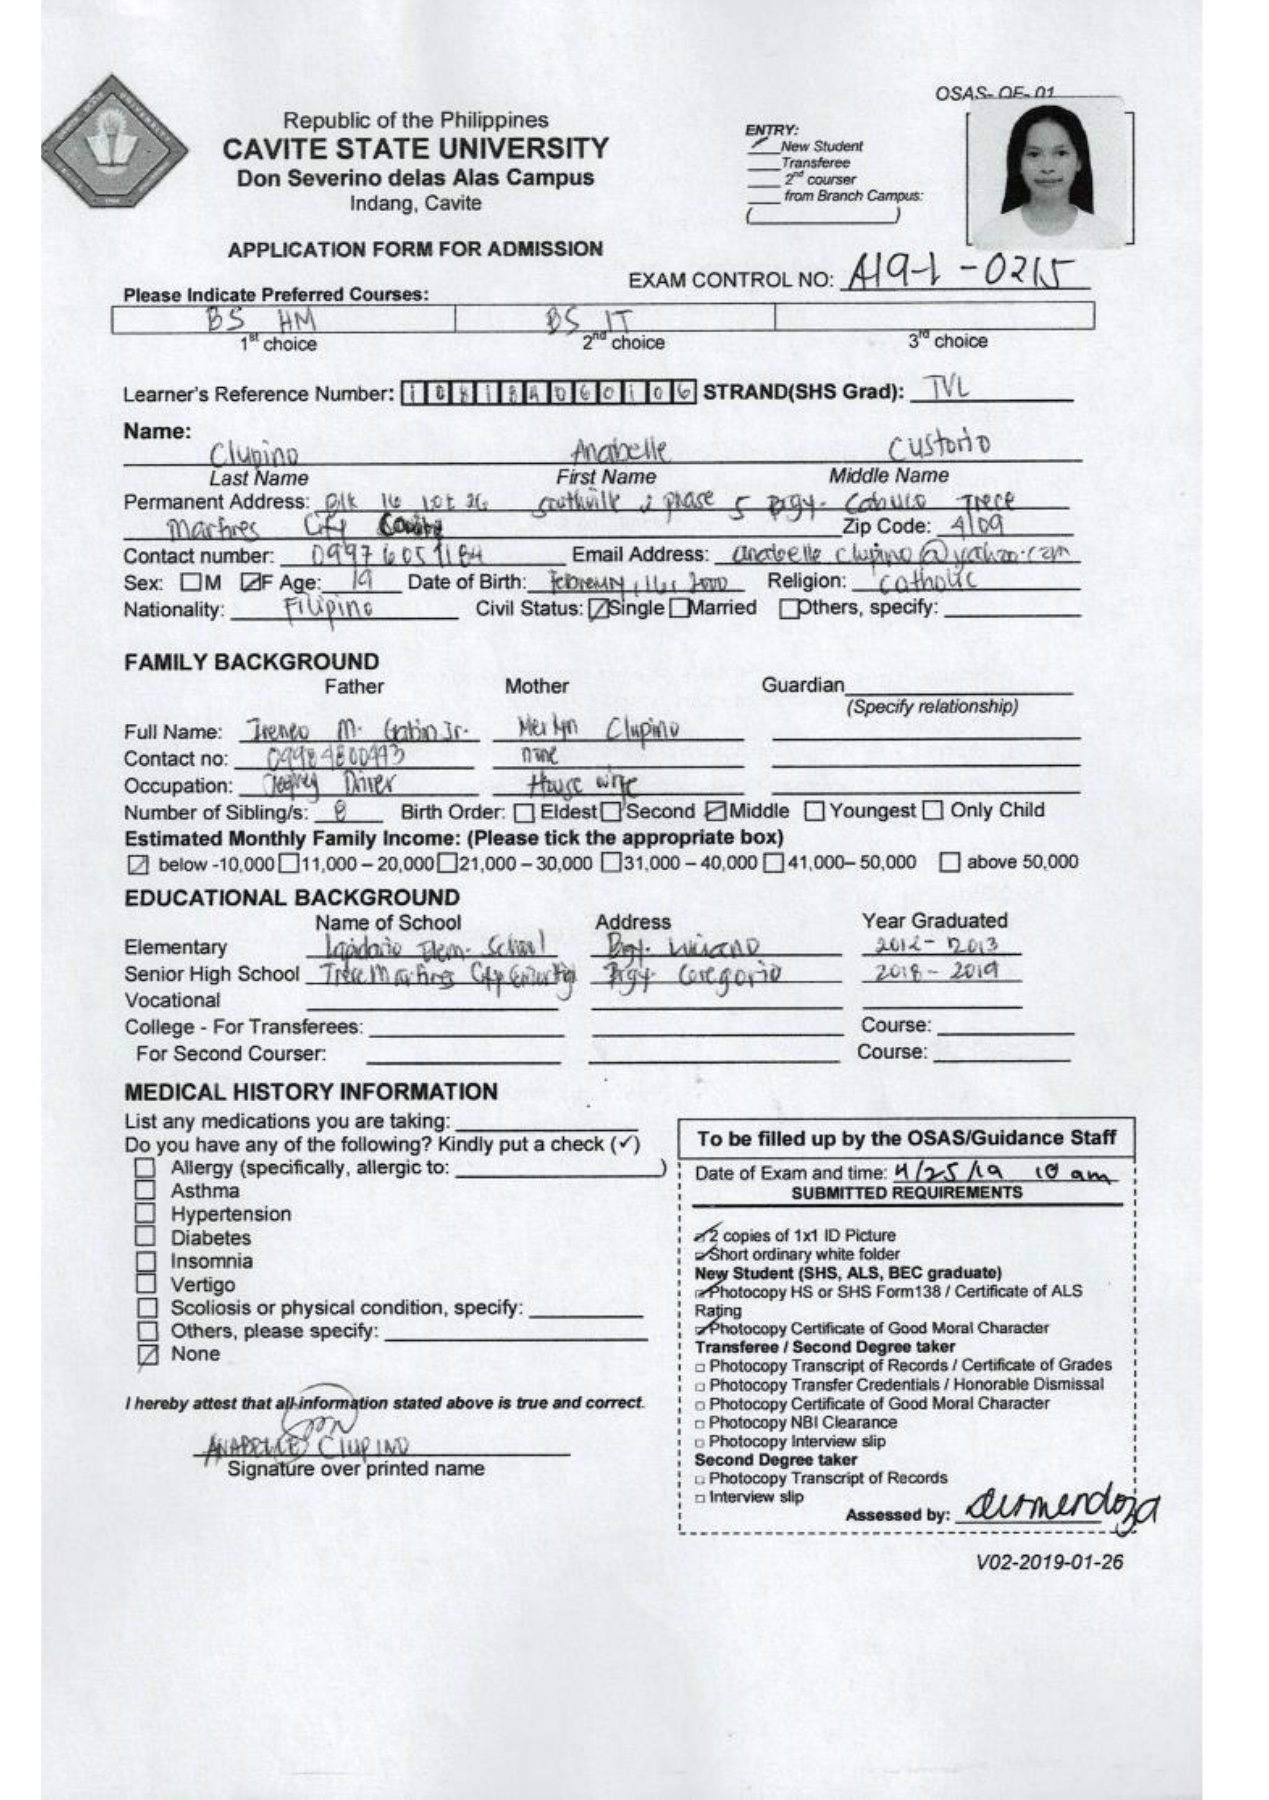 OSAS- OF- 01
Republic of the Philippines
CAVITE STATE UNIVERSITY
Don Severino delas Alas Campus
Indang, Cavite
ENTRY:
New Student
Transferee
2nd courser
from Branch Campus:
( )
APPLICATION FORM FOR ADMISSION
EXAM CONTROL NO: A19-1-0215
Please Indicate Preferred Courses:
BS HM BS IT
1st choice 2nd choice 3rd choice
Learner's Reference Number: STRAND(SHS Grad): TVL
Name:
Clupino Anabelle Custorio
Last Name First Name Middle Name
Permanent Address: Blk 16 lot 26 southville 2 phase 5 Brgy. Cabuco Trece
Martires City Cavite Zip Code: 4109
Contact number: 09976051184 Email Address: anabelle clupino@yahoo.com
Sex: M F Age: 19 Date of Birth: February, 16, 2000 Religion: Catholic
Nationality: Filipino Civil Status: Single Married Others, specify:
FAMILY BACKGROUND
Father Mother Guardian
(Specify relationship)
Full Name: Ireneo M. Gabin Jr. Merlyn Clupino
Contact no: 09984800993 none
Occupation: Driver House wife
Number of Sibling/s: 8 Birth Order: Eldest Second Middle Youngest Only Child
Estimated Monthly Family Income: (Please tick the appropriate box)
below -10,000 11,000 – 20,000 21,000 – 30,000 31,000 – 40,000 41,000– 50,000 above 50,000
EDUCATIONAL BACKGROUND
Name of School Address Year Graduated
Elementary Lapidario Elem. School Brgy. Luciano 2012-2013
Senior High School Trece Martires City Brgy. Gregorio 2018-2019
Vocational
College - For Transferees: Course:
For Second Courser: Course:
MEDICAL HISTORY INFORMATION
List any medications you are taking:
Do you have any of the following? Kindly put a check (✓)
Allergy (specifically, allergic to: )
Asthma
Hypertension
Diabetes
Insomnia
Vertigo
Scoliosis or physical condition, specify:
Others, please specify:
None
I hereby attest that all information stated above is true and correct.
ANABELLE CLUPINO
Signature over printed name
To be filled up by the OSAS/Guidance Staff
Date of Exam and time: 4/25/19 10 am
SUBMITTED REQUIREMENTS
2 copies of 1x1 ID Picture
Short ordinary white folder
New Student (SHS, ALS, BEC graduate)
Photocopy HS or SHS Form138 / Certificate of ALS
Rating
Photocopy Certificate of Good Moral Character
Transferee / Second Degree taker
Photocopy Transcript of Records / Certificate of Grades
Photocopy Transfer Credentials / Honorable Dismissal
Photocopy Certificate of Good Moral Character
Photocopy NBI Clearance
Photocopy Interview slip
Second Degree taker
Photocopy Transcript of Records
Interview slip
Assessed by:
V02-2019-01-26